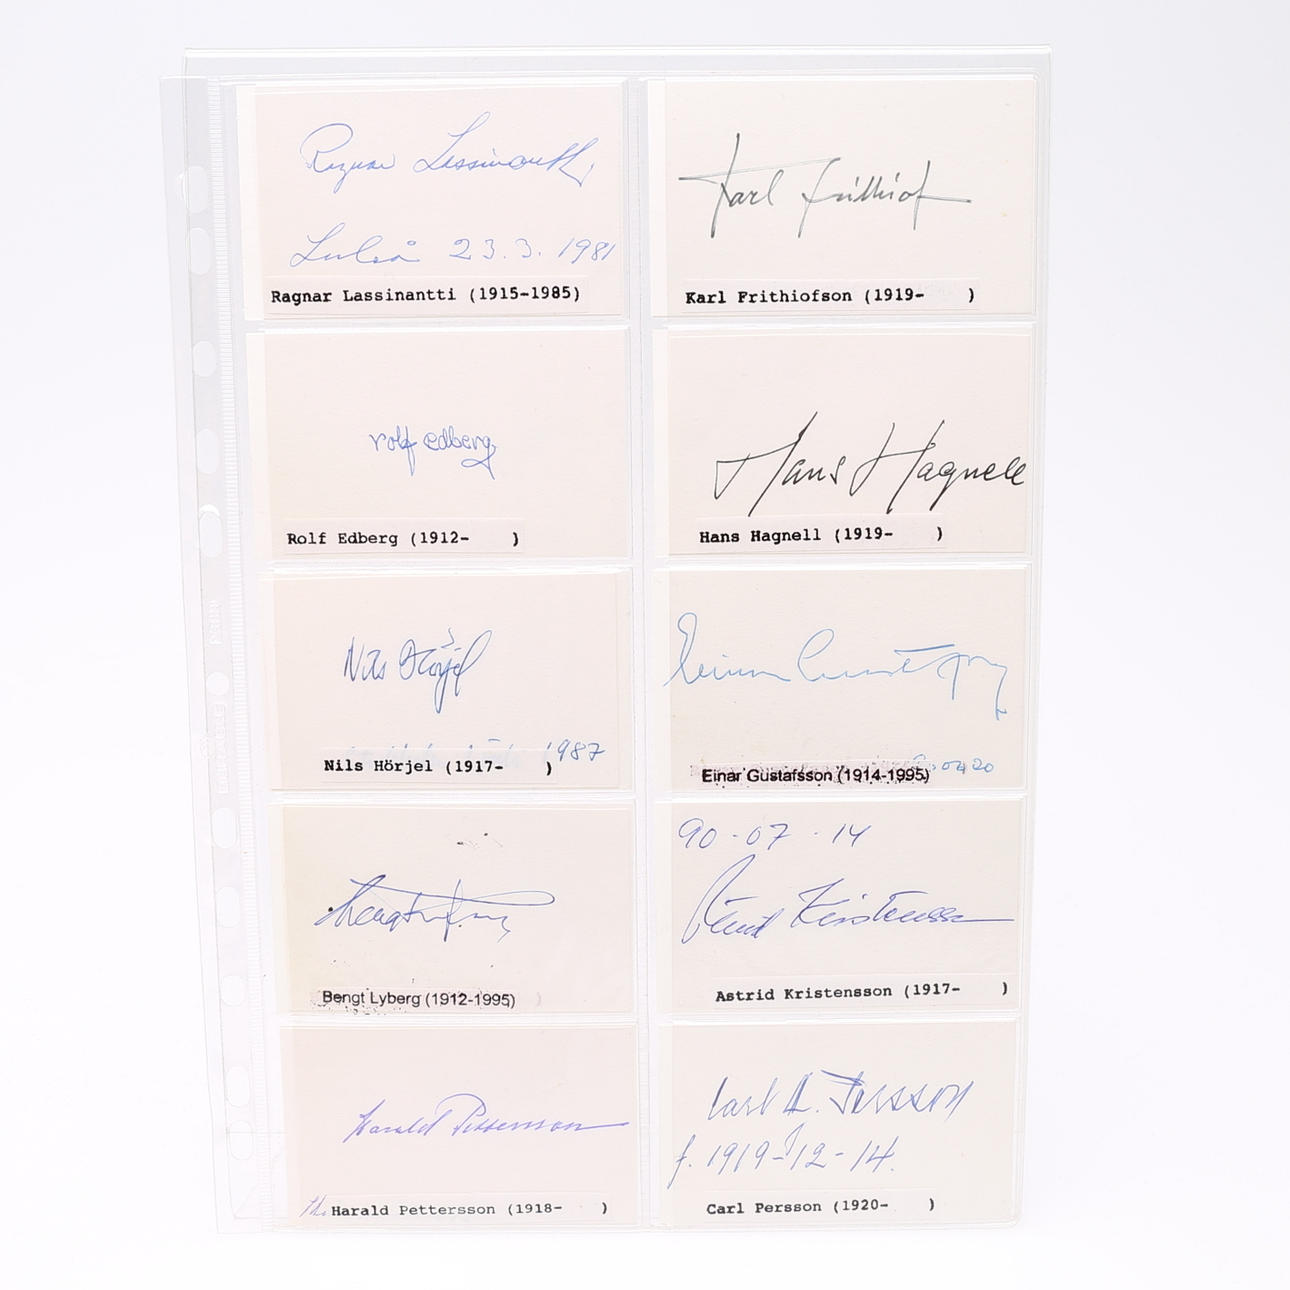 Ragnar Lassinantti
Luleå 23.3.1981
Ragnar Lassinantti (1915-1985)
Karl Frithiof
Karl Frithiofson (1919- )
rolf edberg
Rolf Edberg (1912- )
Hans Hagnell
Hans Hagnell (1919- )
Nils Hörjel
1987
Nils Hörjel (1917- )
Einar Gustafsson
0420
Einar Gustafsson (1914-1995)
Bengt Lyberg
Bengt Lyberg (1912-1995)
90-07-14
Astrid Kristensson
Astrid Kristensson (1917- )
Harald Pettersson
Harald Pettersson (1918- )
Carl A. Persson
f. 1919-12-14.
Carl Persson (1920- )